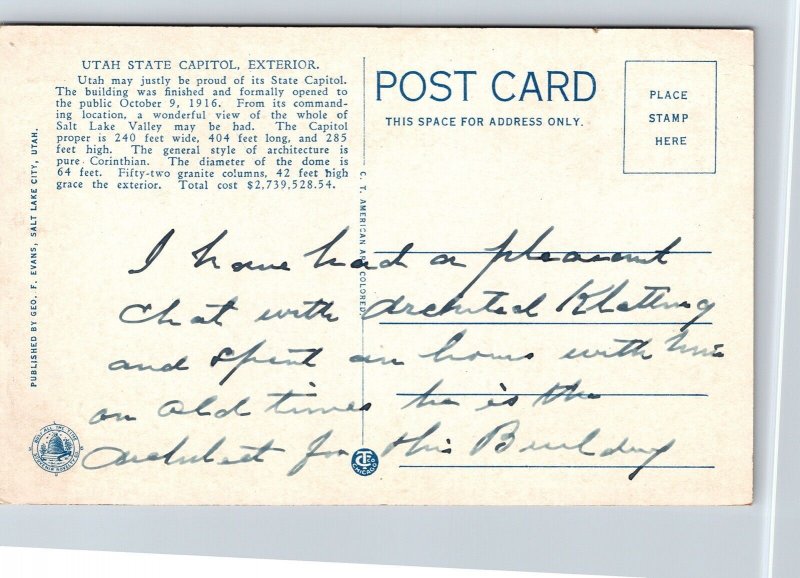 UTAH STATE CAPITOL, EXTERIOR.
Utah may justly be proud of its State Capitol.
The building was finished and formally opened to
the public October 9, 1916. From its command-
ing location, a wonderful view of the whole of
Salt Lake Valley may be had. The Capitol
proper is 240 feet wide, 404 feet long, and 285
feet high. The general style of architecture is
pure Corinthian. The diameter of the dome is
64 feet. Fifty-two granite columns, 42 feet high
grace the exterior. Total cost $2,739,528.54.
POST CARD
THIS SPACE FOR ADDRESS ONLY.
PLACE
STAMP
HERE
PUBLISHED BY GEO. F. EVANS, SALT LAKE CITY, UTAH.
C. T. AMERICAN ART COLORED.
I have had a pleasant
chat with Architect Kletting
and spent an hour with him
on old times he is the
architect for this Building
CHICAGO